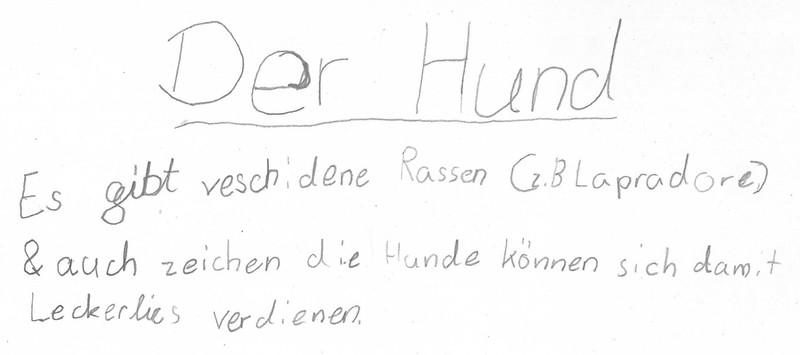 Der Hund
Es gibt veschidene Rassen (z.B Lapradore)
& auch zeichen die Hunde können sich damit
Leckerlies verdienen.